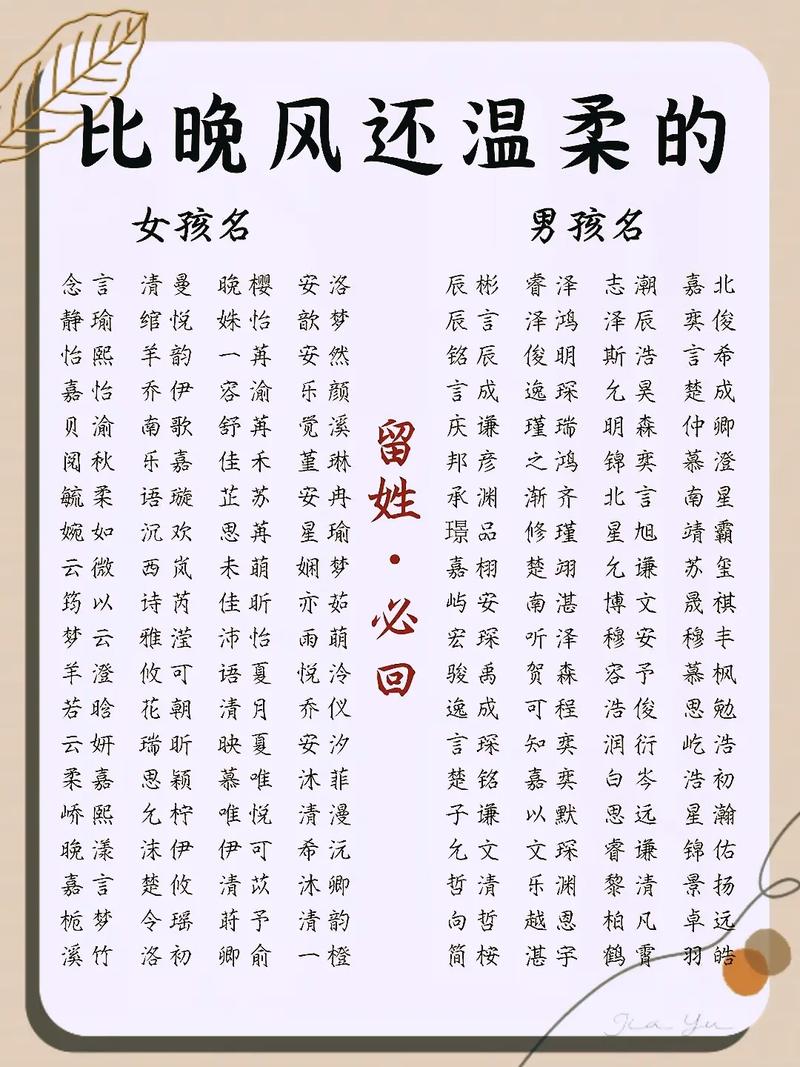 比晚风还温柔的
女孩名 男孩名
念言 清曼 晚樱 安洛 辰彬 睿泽 志潮 嘉北
静瑜 绾悦 姝怡 歆梦 辰言 泽鸿 泽辰 奕俊
怡熙 羊韵 一苒 安然 铭辰 俊明 斯浩 言希
嘉怡 乔伊 容渝 乐颜 言成 逸琛 允昊 楚成
贝渝 南歌 舒苒 觉溪 庆谦 瑾瑞 明森 仲卿
阅秋 乐嘉 佳禾 堇琳 邦彦 之鸿 锦奕 慕澄
毓柔 语璇 芷苏 安冉 承渊 渐齐 北言 南星
婉如 沉欢 思苒 星瑜 璟品 修瑾 星旭 靖霸
云微 西岚 未萌 娴梦 嘉栩 楚翊 允谦 苏玺
筠以 诗芮 佳昕 亦茹 屿安 南湛 博文 晟祺
梦云 雅滢 沛怡 雨萌 宏琛 听泽 穆安 穆丰
羊澄 攸可 语夏 悦泠 骏禹 贺森 容予 慕枫
若晗 花朝 清月 乔仪 逸成 可程 浩俊 思勉
云妍 瑞昕 映夏 安汐 言琛 知奕 润衍 屹浩
柔嘉 思颖 慕唯 沐菲 楚铭 嘉奕 白岑 浩初
峤熙 允柠 唯悦 清漫 子谦 以默 思远 星瀚
晚漾 沫伊 伊可 希沅 允文 文琛 睿谦 锦佑
嘉言 楚攸 清苡 沐卿 哲清 乐渊 黎清 景扬
栀梦 令瑶 莳予 清韵 向哲 越恩 柏凡 卓远
溪竹 洛初 卿俞 一橙 简桉 湛宇 鹤霄 羽皓
留姓·必回
Jia Yu